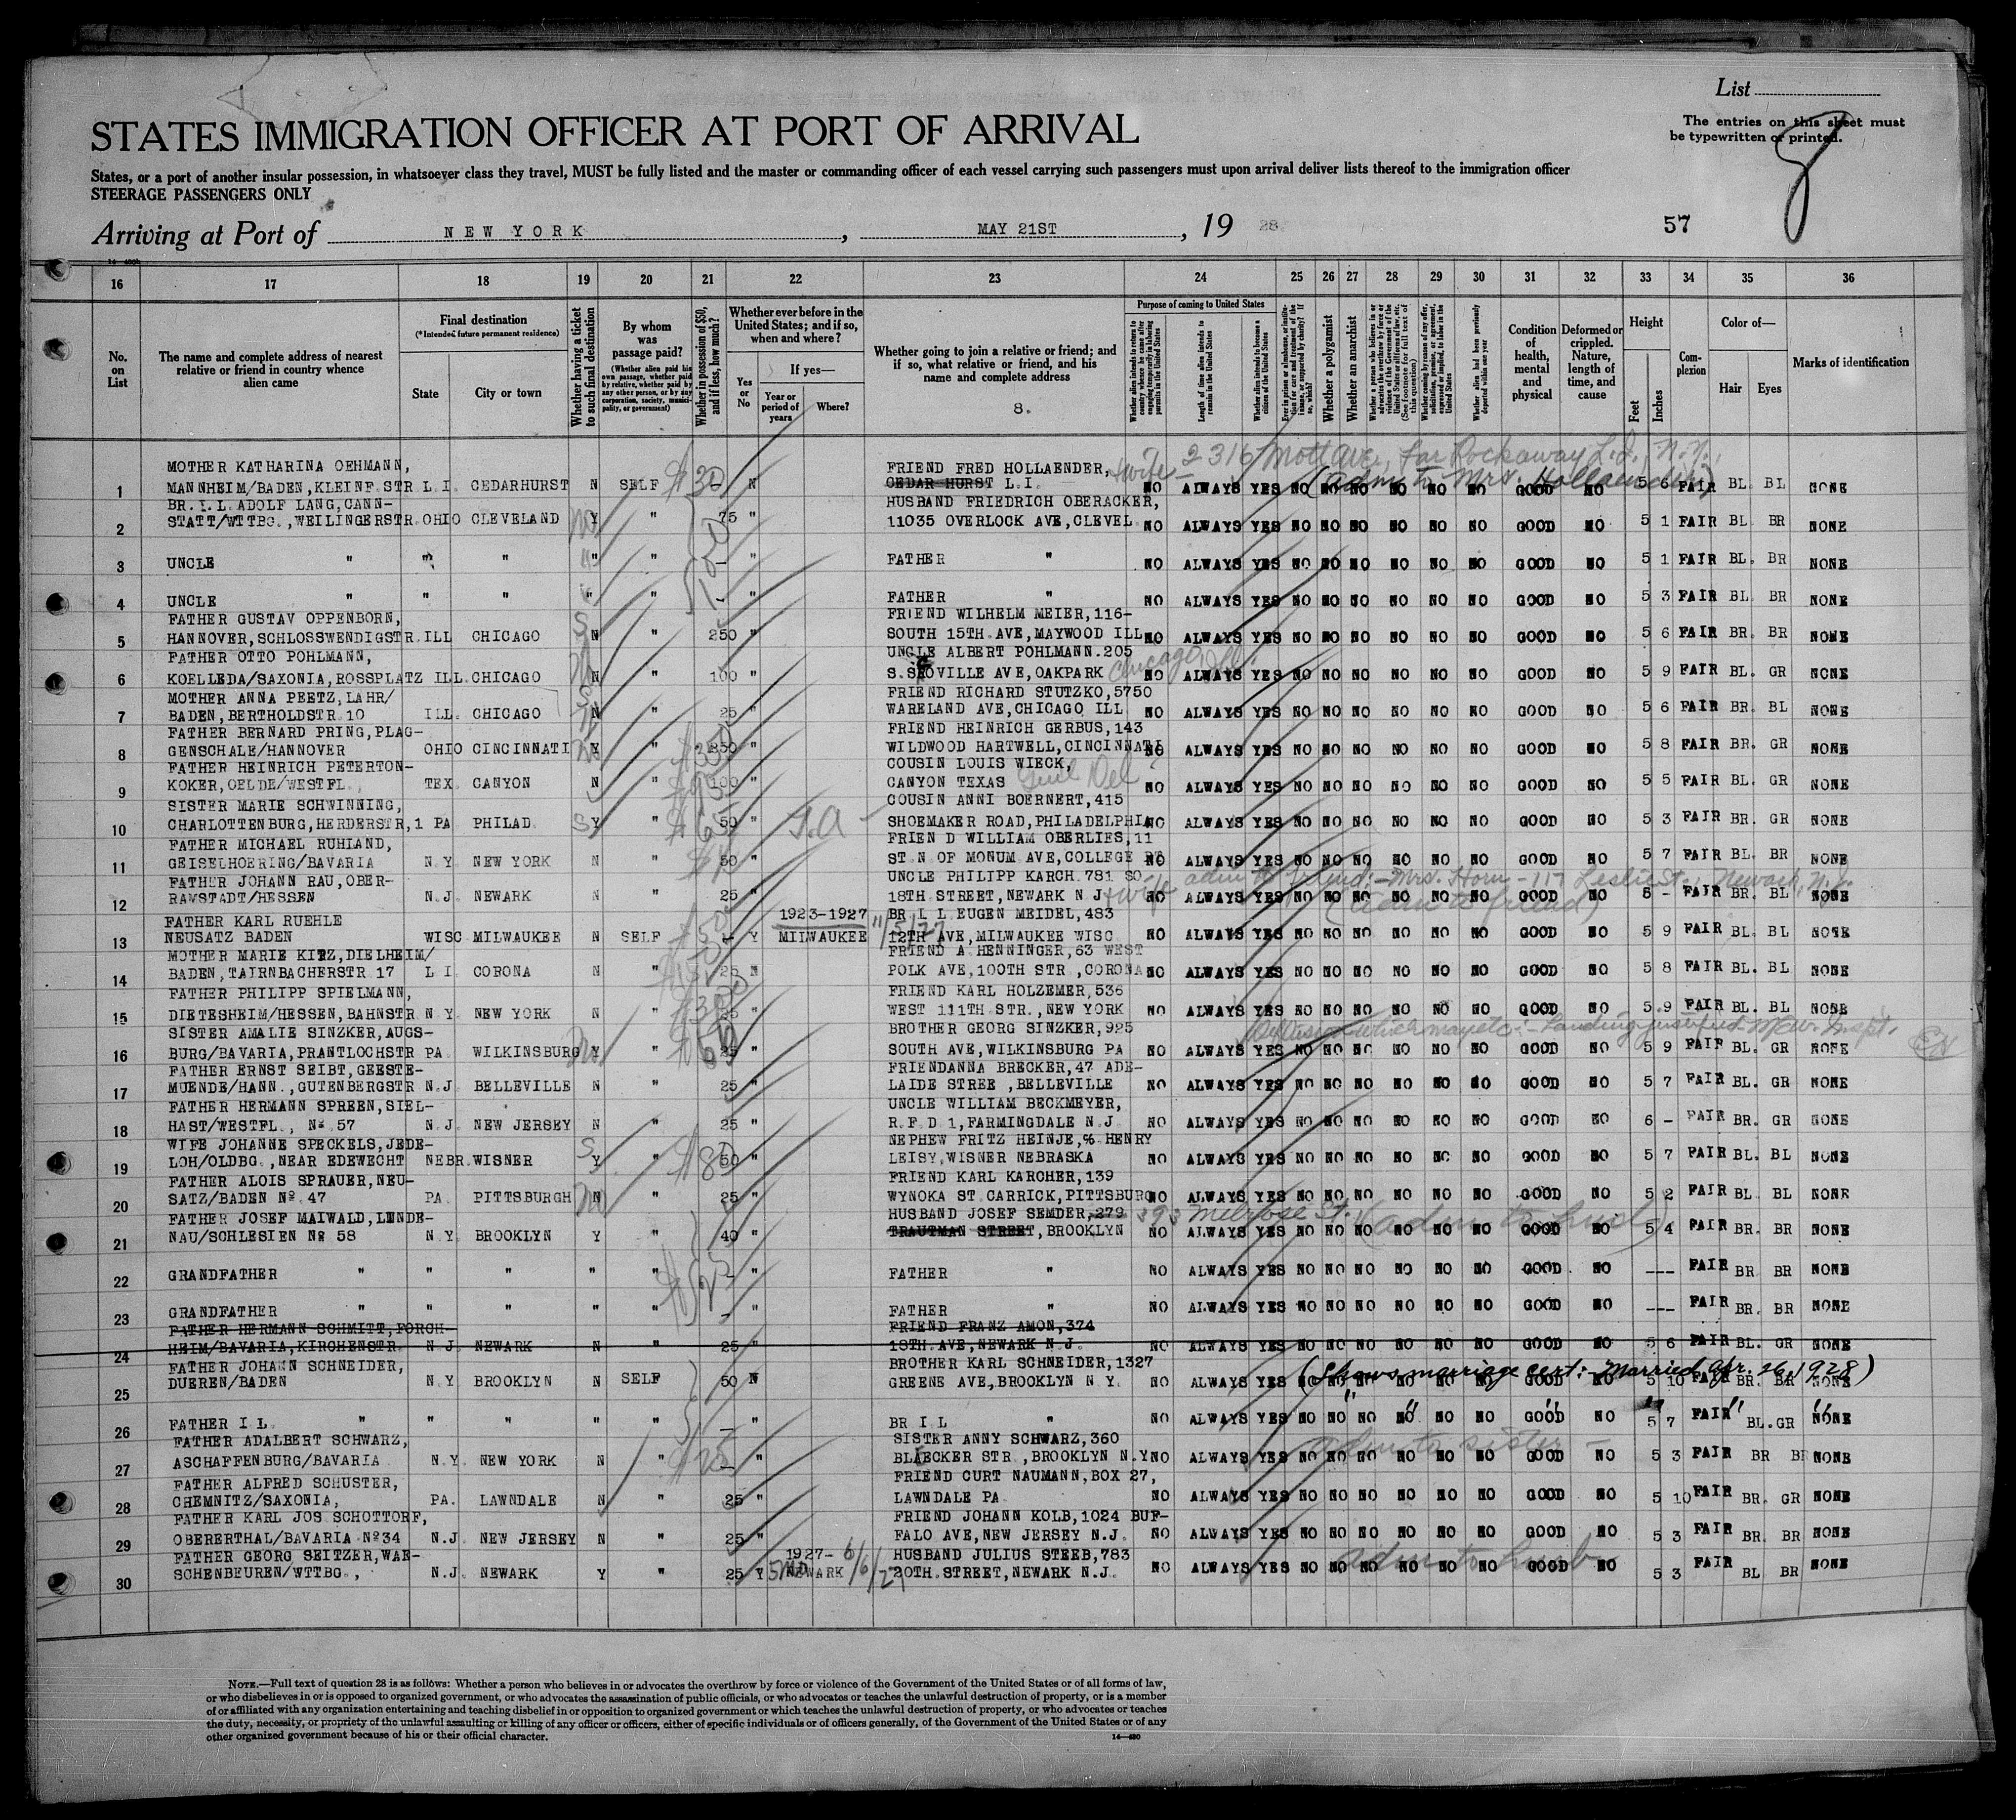 List
The entries on this sheet must
be typewritten or printed.
8
STATES IMMIGRATION OFFICER AT PORT OF ARRIVAL
States, or a port of another insular possession, in whatsoever class they travel, MUST be fully listed and the master or commanding officer of each vessel carrying such passengers must upon arrival deliver lists thereof to the immigration officer
STEERAGE PASSENGERS ONLY
Arriving at Port of NEW YORK, MAY 21ST, 19 28 57
16 17 18 19 20 21 22 23 24 25 26 27 28 29 30 31 32 33 34 35 36
No. on List
The name and complete address of nearest relative or friend in country whence alien came
Final destination
(*Intended future permanent residence)
State
City or town
Whether having a ticket to such final destination
By whom was passage paid?
(Whether alien paid his own passage, whether paid by relative, whether paid by any other person, or by any corporation, society, municipality, or government)
Whether in possession of $50, and if less, how much?
Whether ever before in the United States; and if so, when and where?
Yes or No
If yes—
Year or period of years
Where?
Whether going to join a relative or friend; and if so, what relative or friend, and his name and complete address
8.
Purpose of coming to United States
Whether alien intends to return to country whence he came after engaging temporarily in laboring pursuits in the United States
Length of time alien intends to remain in the United States
Whether alien intends to become a citizen of the United States
Whether a polygamist
Whether an anarchist
Condition of health, mental and physical
Deformed or crippled. Nature, length of time, and cause
Height
Feet
Inches
Complexion
Color of—
Hair
Eyes
Marks of identification
+wife 2316 Mott Ave, Far Rockaway L.I., N.Y.
MOTHER KATHARINA OEHMANN, FRIEND FRED HOLLAENDER,
1 MANNHEIM/BADEN,KLEINF.STR L.I. CEDARHURST N SELF $30 - N CEDAR HURST L.I. NO ALWAYS YES NO (adm to Mrs. Hollaender) 5 6 FAIR BL. BL NONE
BR.I.L.ADOLF LANG,CANN- HUSBAND FRIEDRICH OBERACKER,
2 STATT/WTTBG.,WEILINGERSTR.OHIO CLEVELAND Y " 75 " 11035 OVERLOCK AVE,CLEVEL. NO ALWAYS YES NO NO NO NO NO NO GOOD NO 5 1 FAIR BL BR NONE
3 UNCLE " " " " " - " FATHER " NO ALWAYS YES NO NO NO NO NO NO GOOD NO 5 1 FAIR BL. BR NONE
4 UNCLE " " " " " - " FATHER " NO ALWAYS YES NO NO NO NO NO NO GOOD NO 5 3 FAIR BL. BR NONE
FATHER GUSTAV OPPENBORN, FRIEND WILHELM MEIER,116-
5 HANNOVER,SCHLOSSWENDIGSTR.ILL CHICAGO N " 250 " SOUTH 15TH.AVE,MAYWOOD ILL. NO ALWAYS YES NO NO NO NO NO NO GOOD NO 5 6 FAIR BR. BR NONE
FATHER OTTO POHLMANN, UNCLE ALBERT POHLMANN.205 Chicago, Ill.
6 KOELLEDA/SAXONIA,ROSSPLATZ ILL.CHICAGO N " 100 " S.SCOVILLE AVE,OAKPARK NO ALWAYS YES NO NO NO NO NO NO GOOD NO 5 9 FAIR BL. GR NONE
MOTHER ANNA PEETZ,LAHR/ FRIEND RICHARD STUTZKO,5750
7 BADEN,BERTHOLDSTR.10 ILL. CHICAGO N " 25 " WARELAND AVE,CHICAGO ILL NO ALWAYS YES NO NO NO NO NO NO GOOD NO 5 6 FAIR BR. BL NONE
FATHER BERNARD PRING,PLAG- FRIEND HEINRICH GERBUS,143
8 GENSCHALE/HANNOVER OHIO CINCINNATI Y " 350 " WILDWOOD HARTWELL,CINCINNATI NO ALWAYS YES NO NO NO NO NO NO GOOD NO 5 8 FAIR BR. GR NONE
FATHER HEINRICH PETERTON- COUSIN LOUIS WIECK,
9 KOKER,OELDE/WESTFL., TEX. CANYON N " 100 " CANYON TEXAS NO ALWAYS YES NO NO NO NO NO NO GOOD NO 5 5 FAIR BL. GR NONE
SISTER MARIE SCHWINNING, COUSIN ANNI BOERNERT,415
10 CHARLOTTENBURG,HERDERSTR,1 PA PHILAD. Y " 50 " SHOEMAKER ROAD,PHILADELPHIA NO ALWAYS YES NO NO NO NO NO NO GOOD NO 5 3 FAIR BR. GR NONE
FATHER MICHAEL RUHLAND, FRIEN D WILLIAM OBERLIES,11
11 GEISELHOERING/BAVARIA N.Y. NEW YORK N " 50 " ST N OF MONUM AVE,COLLEGE PT NO ALWAYS YES NO NO NO NO NO NO GOOD NO 5 7 FAIR BL. BR NONE
FATHER JOHANN RAU,OBER- UNCLE PHILIPP KARCH.781 SO. adm to friend:- Mrs. Horn - 117 Leslie St., Newark, N.J.
12 RAMSTADT/HESSEN N.J. NEWARK N " 25 " 18TH STREET,NEWARK N.J +wife NO ALWAYS YES NO NO NO NO NO NO GOOD NO 5 - FAIR BR. BL NONE
(adm to friend)
FATHER KARL RUEHLE 1923-1927 BR I L EUGEN MEIDEL,483
13 NEUSATZ BADEN WISC MILWAUKEE N SELF $50 - Y MILWAUKEE 11/5/27 12TH AVE,MILWAUKEE WISC. NO ALWAYS YES NO NO NO NO NO NO GOOD NO 5 9 FAIR BL. BL NONE
MOTHER MARIE KITZ,DIELHEIM/ FRIEND A HENNINGER,63 WEST
14 BADEN,TAIRNBACHERSTR.17 L.I. CORONA N " 25 N POLK AVE,100TH STR.,CORONA NO ALWAYS YES NO NO NO NO NO NO GOOD NO 5 8 FAIR BL. BL NONE
FATHER PHILIPP SPIELMANN, FRIEND KARL HOLZEMER,536
15 DIETESHEIM/HESSEN,BAHNSTR.N.Y. NEW YORK N " $300 25 " WEST 111TH STR.,NEW YORK NO ALWAYS YES NO NO NO NO NO NO GOOD NO 5 9 FAIR BL. BL NONE
SISTER AMALIE SINZKER,AUGS- BROTHER GEORG SINZKER,925
16 BURG/BAVARIA,PRANTLOCHSTR PA. WILKINSBURG Y " $65 25 " SOUTH AVE,WILKINSBURG PA NO ALWAYS YES NO NO NO NO NO NO GOOD NO 5 9 FAIR BL. GR NONE
FATHER ERNST SEIBT,GEESTE- FRIENDANNA BRECKER,47 ADE-
17 MUENDE/HANN.,GUTENBERGSTR N.J. BELLEVILLE N " 25 " LAIDE STREE ,BELLEVILLE NO ALWAYS YES NO NO NO NO NO NO GOOD NO 5 7 FAIR BL. GR NONE
FATHER HERMANN SPREEN,SIEL- UNCLE WILLIAM BECKMEYER,
18 HAST/WESTFL., Nº 57 N.J. NEW JERSEY N " 25 " R.F.D 1,FARMINGDALE N.J. NO ALWAYS YES NO NO NO NO NO NO GOOD NO 6 - FAIR BR. GR NONE
WIFE JOHANNE SPECKELS,JEDE- NEPHEW FRITZ HEINJE,% HENRY
19 LOH/OLDBG.,NEAR EDEWECHT NEBR.WISNER Y " $80 50 " LEISY,WISNER NEBRASKA NO ALWAYS YES NO NO NO NO NO NO GOOD NO 5 7 FAIR BL. BL NONE
FATHER ALOIS SPRAUER,NEU- FRIEND KARL KARCHER,139
20 SATZ/BADEN Nº.47 PA. PITTSBURGH N " 25 " WYNOKA ST.CARRICK,PITTSBURG NO ALWAYS YES NO NO NO NO NO NO GOOD NO 5 2 FAIR BL BL NONE
FATHER JOSEF MAIWALD,LINDE- HUSBAND JOSEF SEMDER,279 393 Melrose St. (adm to husb)
21 NAU/SCHLESIEN Nº 58 N.Y. BROOKLYN Y " 40 " TRAUTMAN STREET,BROOKLYN NO ALWAYS YES NO NO NO NO NO NO GOOD NO 5 4 FAIR BR. BR NONE
22 GRANDFATHER " " " " " - " FATHER " NO ALWAYS YES NO NO NO NO NO NO GOOD NO --- FAIR BR BR NONE
23 GRANDFATHER " " " " " - " FATHER " NO ALWAYS YES NO NO NO NO NO NO GOOD NO --- FAIR BR. BR NONE
FATHER HERMANN SCHMITT,FORCH- FRIEND FRANZ AMON,374
24 HEIM/BAVARIA,KIRCHENSTR. N.J. NEWARK N " 25 " 18TH.AVE,NEWARK N.J. NO ALWAYS YES NO NO NO NO NO NO GOOD NO 5 6 FAIR BL. GR NONE
FATHER JOHANN SCHNEIDER, BROTHER KARL SCHNEIDER,1327 (Shows marriage cert: - Married Apr. 16, 1928)
25 DUEREN/BADEN N.Y BROOKLYN N SELF 50 N GREENE AVE,BROOKLYN N Y. NO ALWAYS YES NO NO NO NO NO NO GOOD NO 5 10 FAIR BR. BR NONE
26 FATHER I L " " " " " - " BR I L " NO ALWAYS YES NO NO NO NO NO NO GOOD NO 5 7 FAIR BL.GR NONE
FATHER ADALBERT SCHWARZ, SISTER ANNY SCHWARZ,360 adm to sister -
27 ASCHAFFENBURG/BAVARIA N.Y. NEW YORK N " $25 - " BLEECKER STR.,BROOKLYN N.Y. NO ALWAYS YES NO NO NO NO NO NO GOOD NO 5 3 FAIR BR NONE
FATHER ALFRED SCHUSTER, FRIEND CURT NAUMANN,BOX 27,
28 CHEMNITZ/SAXONIA, PA. LAWNDALE N " 25 " LAWNDALE PA. NO ALWAYS YES NO NO NO NO NO NO GOOD NO 5 10 FAIR BR. GR NONE
FATHER KARL JOS.SCHOTTORF, FRIEND JOHANN KOLB,1024 BUF-
29 OBERERTHAL/BAVARIA Nº34 N.J. NEW JERSEY N " 25 " FALO AVE,NEW JERSEY N.J. NO ALWAYS YES NO NO NO NO NO NO GOOD NO 5 3 FAIR BR. BR NONE
FATHER GEORG SEITZER,WAE- 1927- 6/6/27 HUSBAND JULIUS STEEB,783 adm to husb
30 SCHENBEUREN/WTTBG., N.J. NEWARK Y " 25 Y NEWARK 20TH.STREET,NEWARK N.J. NO ALWAYS YES NO NO NO NO NO NO GOOD NO 5 3 FAIR BL BR NONE
NOTE.—Full text of question 28 is as follows: Whether a person who believes in or advocates the overthrow by force or violence of the Government of the United States or of all forms of law,
or who disbelieves in or is opposed to organized government, or who advocates the assassination of public officials, or who advocates or teaches the unlawful destruction of property, or is a member
of or affiliated with any organization entertaining and teaching disbelief in or opposition to organized government or which teaches the unlawful destruction of property, or who advocates or teaches
the duty, necessity, or propriety of the unlawful assaulting or killing of any officer or officers, either of specific individuals or of officers generally, of the Government of the United States or of any
other organized government because of his or their official character.
14—480